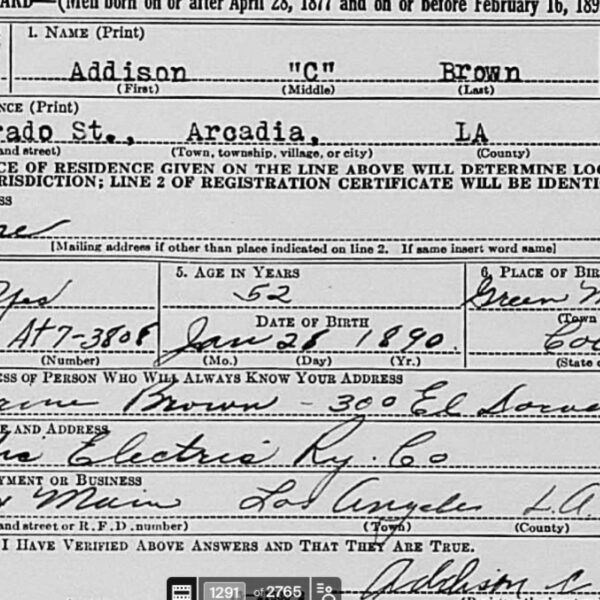 ARD—(Men born on or after April 28, 1877 and on or before February 16, 189
1. NAME (Print)
Addison "C" Brown
(First) (Middle) (Last)
NCE (Print)
rado St., Arcadia, LA
and street) (Town, township, village, or city) (County)
CE OF RESIDENCE GIVEN ON THE LINE ABOVE WILL DETERMINE LOC
RISDICTION; LINE 2 OF REGISTRATION CERTIFICATE WILL BE IDENTI
SS
[Mailing address if other than place indicated on line 2. If same insert word same]
5. AGE IN YEARS 6. PLACE OF BIR
Yes 52 Green
DATE OF BIRTH (Town
At 7-3808 Jan 28 1890.
(Number) (Mo.) (Day) (Yr.) (State o
SS OF PERSON WHO WILL ALWAYS KNOW YOUR ADDRESS
Brown - 300 El
E AND ADDRESS
Electric Ry. Co
YMENT OR BUSINESS
Main Los Angeles L.A.
and street or R. F. D. number) (Town) (County)
I HAVE VERIFIED ABOVE ANSWERS AND THAT THEY ARE TRUE.
Addison C
1291 of 2765